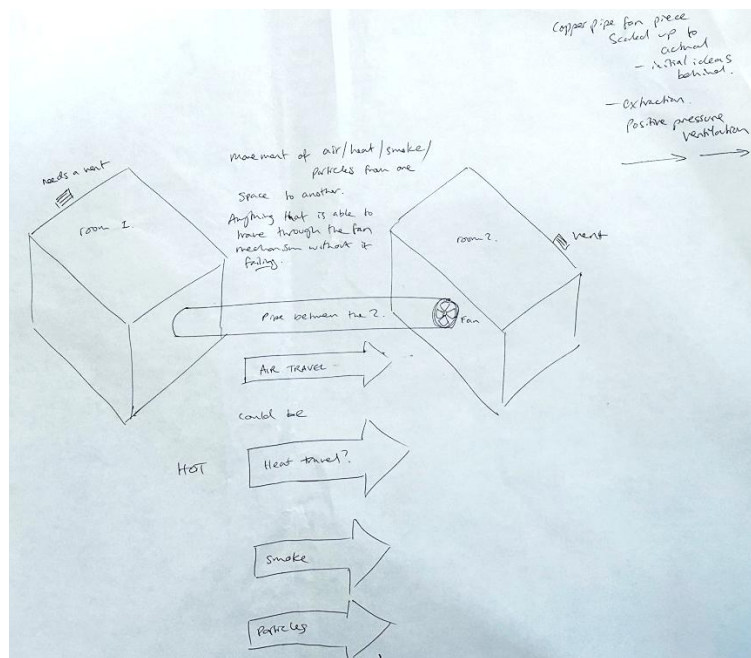 Copper pipe fan piece
Scaled up to
actual
- initial ideas
behind.
- extraction.
Positive pressure
ventilation
needs a vent
movement of air/heat/smoke/
particles from one
space to another.
Anything that is able to
trave through the fan
mechanism without it
failing.
room 1.
room 2.
vent
Pipe between the 2.
Fan
AIR TRAVEL
could be
HOT
Heat travel?
smoke
Particles